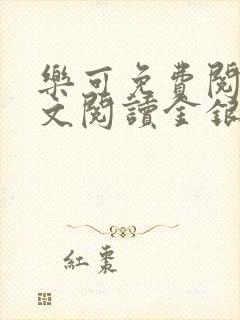 樂可免費閱
文閱讀金銀
紅棗